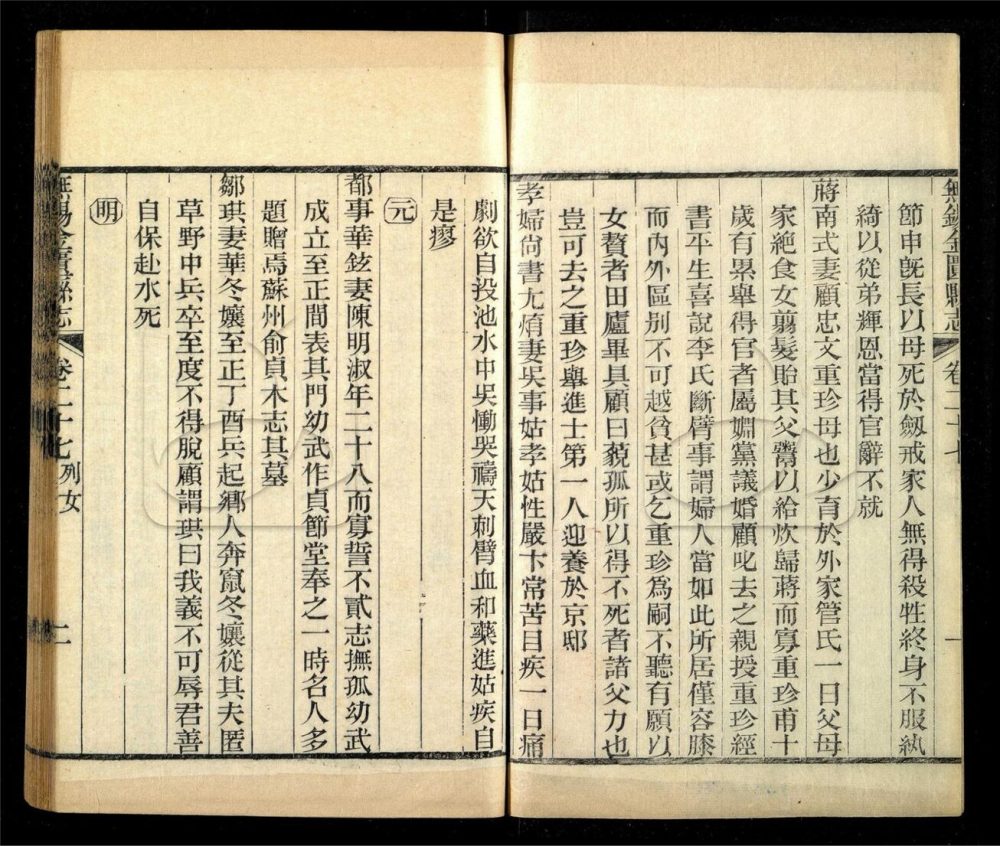 節申旣長以母死於劔戒家人無得殺牲終身不服紈
綺以從弟輝恩當得官辭不就
蔣南式妻顧忠文重珍母也少育於外家管氏一日父母
家絶食女翦髮貽其父鬻以給炊歸蔣而寡重珍甫十
歲有累舉得官者屬婣黨議婚顧叱去之親授重珍經
書平生喜說李氏斷臂事謂婦人當如此所居僅容膝
而內外區别不可越貧甚或乞重珍爲嗣不聽有願以
女贅者田廬畢具顧曰藐孤所以得不死者諸父力也
豈可去之重珍舉進士第一人迎養於京邸
孝婦尙書尤焴妻吳事姑孝姑性嚴卞常苦目疾一日痛
無錫金匱縣志 卷二十七
劇欲自投池水中吳慟哭禱天刺臂血和藥進姑疾自
是瘳
元
都事華鉉妻陳明淑年二十八而寡誓不貳志撫孤幼武
成立至正間表其門幼武作貞節堂奉之一時名人多
題贈焉蘇州俞貞木志其墓
鄒琪妻華冬孃至正丁酉兵起鄉人奔竄冬孃從其夫匿
草野中兵卒至度不得脫顧謂琪曰我義不可辱君善
自保赴水死
明
無錫金匱縣志 卷二十七 列女 二